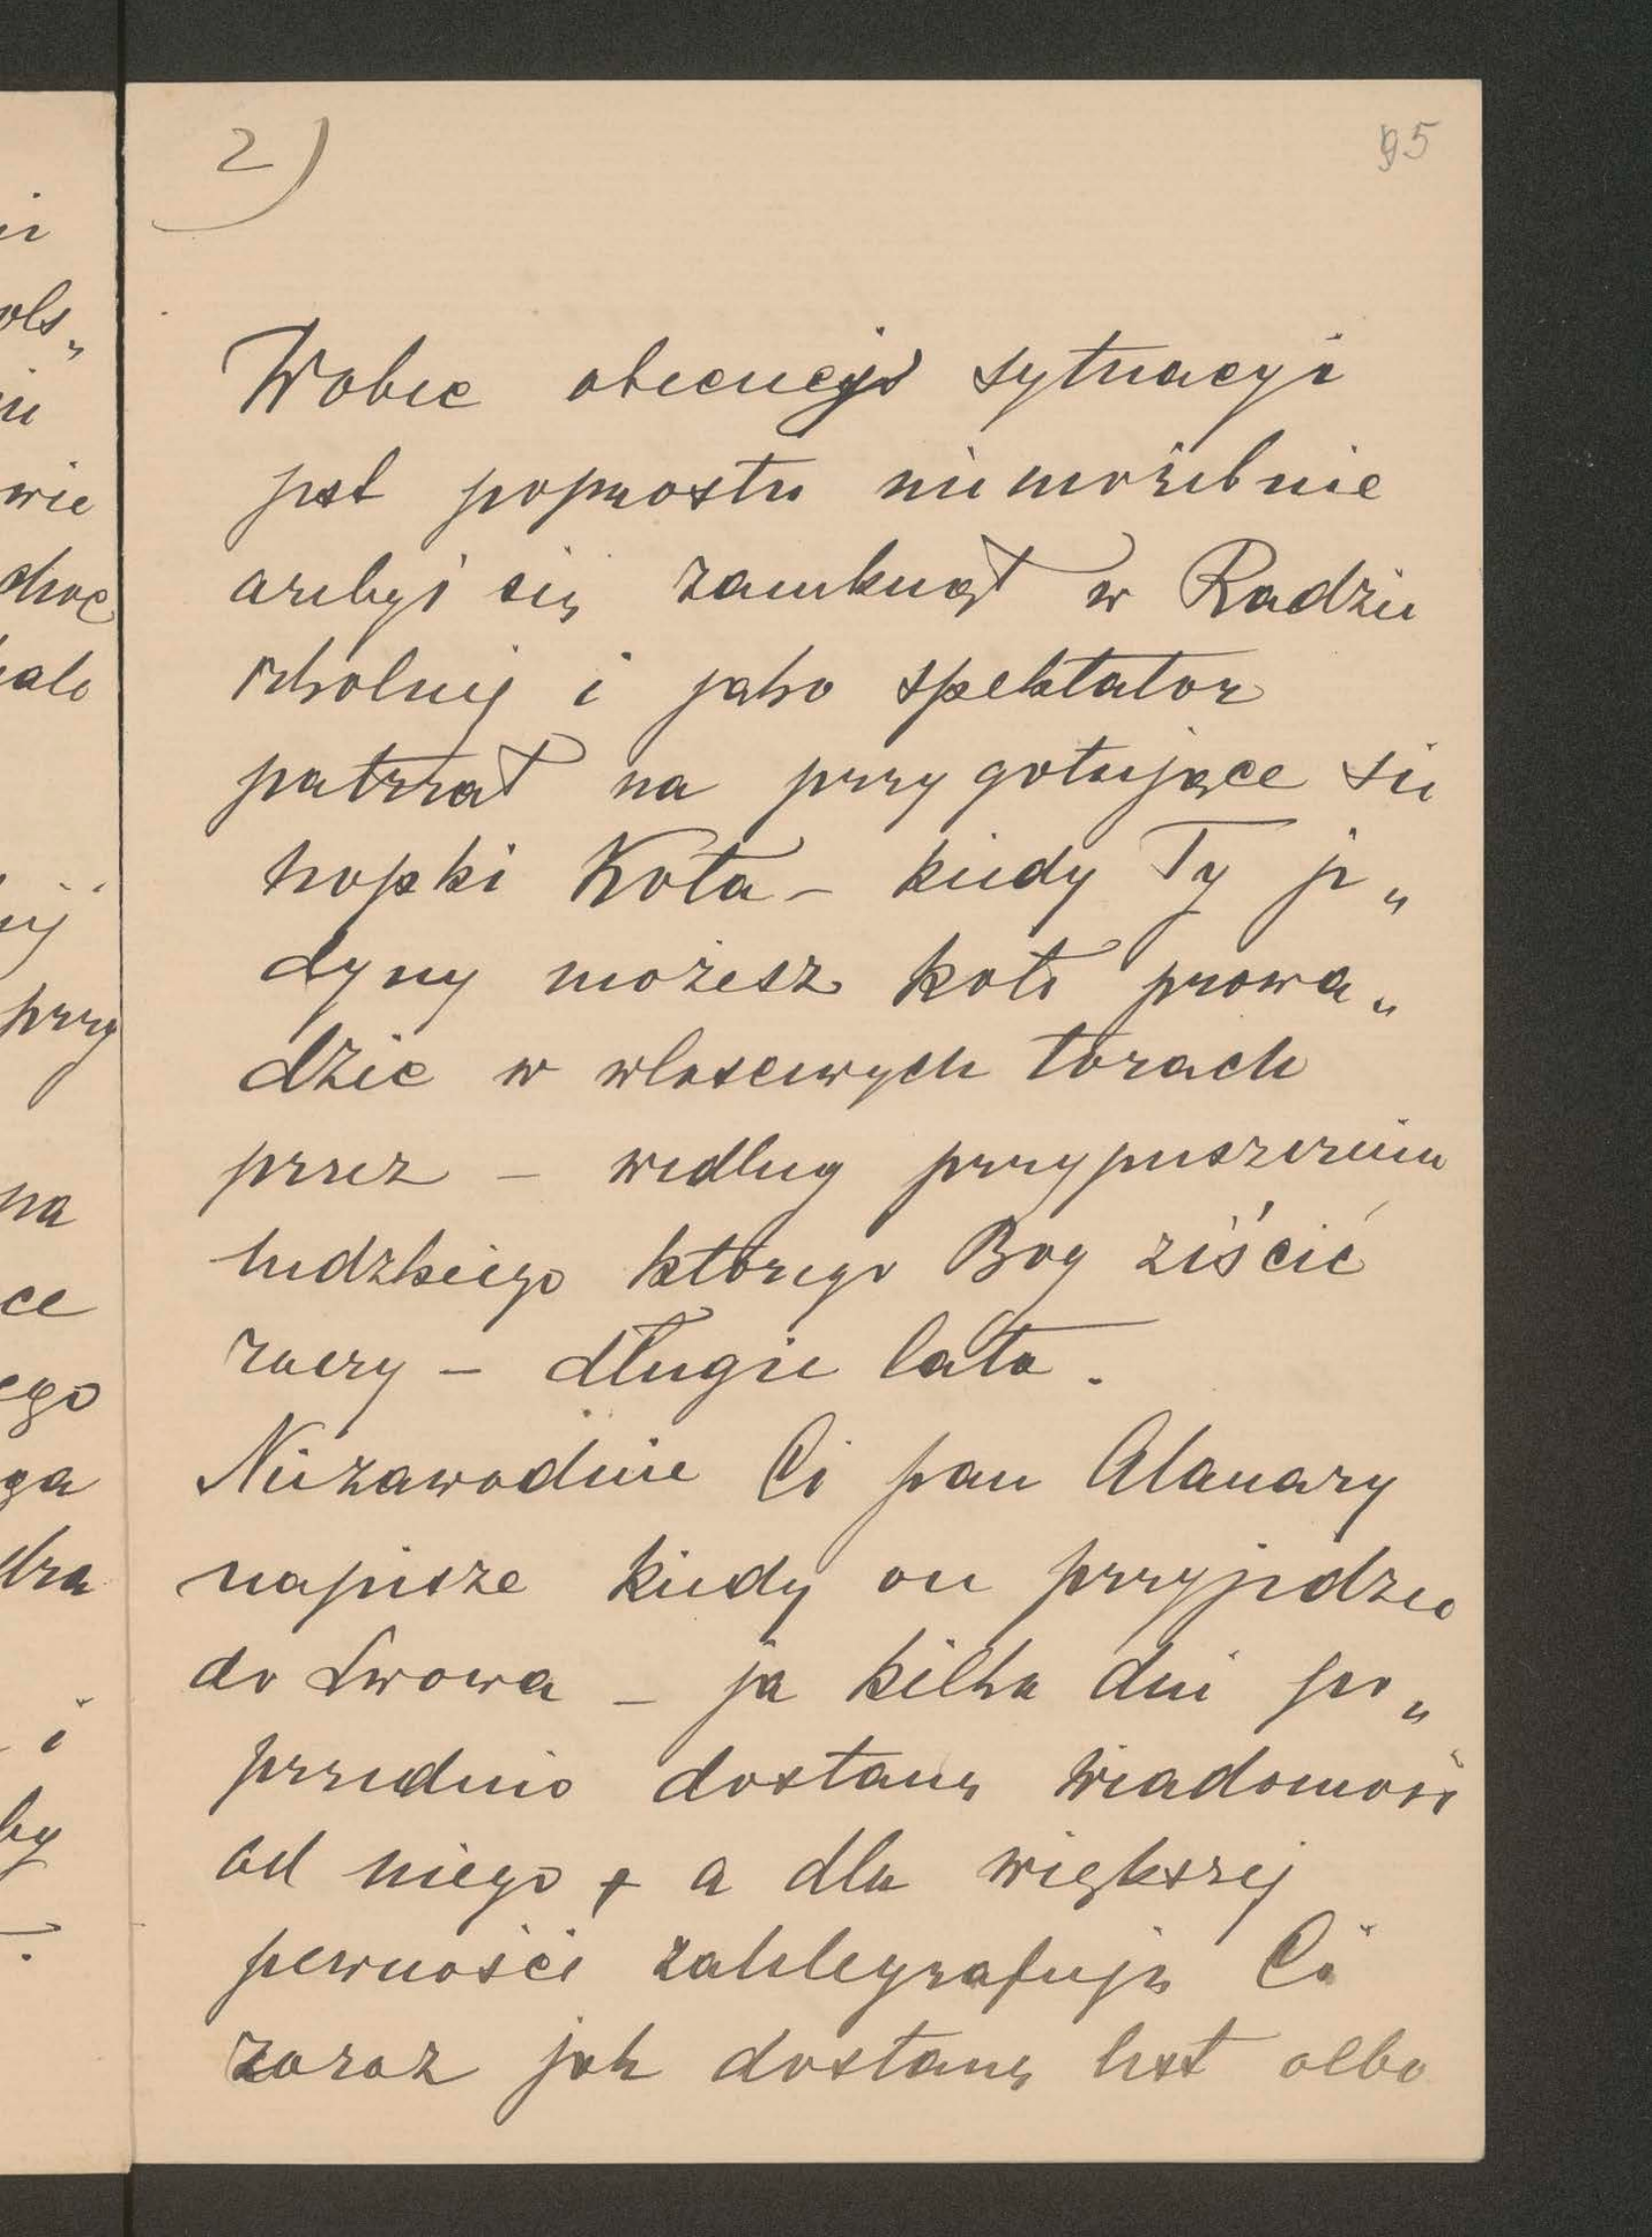 2)
95
Wobec obecnej sytuacyi
jest poprostu niemożebnie
ażebyś się zamknął w Radzie
szkolnej i jako spektator
patrzał na przygotujące się
hopki Koła – kiedy Ty je„
dyny możesz koło prowa„
dzic w wlascewych torach
przez – według przypuszczenia
ludzkiego którego Bog ziścić
raczy – długie lata.
Niezawodnie Ci pan
napisze kiedy on przyjedzie
do Lwowa – ja kilka dni po„
przednio dostanę wiadomość
od niego a dla większej
pewności zatelegrafuję Ci
zaraz jak dostanę list albo